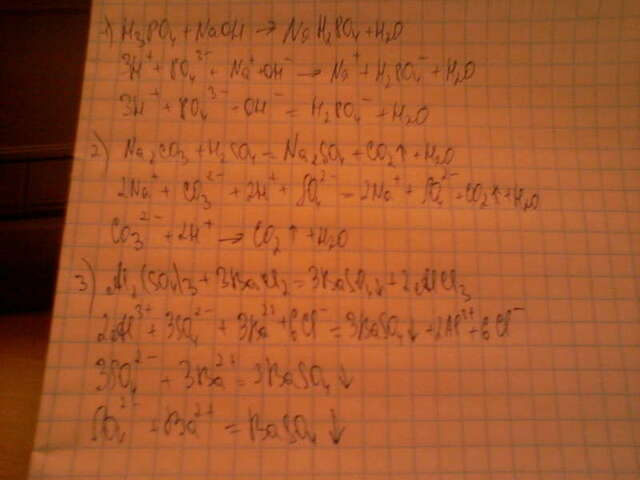 1) H₃PO₄ + NaOH → NaH₂PO₄ + H₂O
3H⁺ + PO₄³⁻ + Na⁺ + OH⁻ → Na⁺ + H₂PO₄⁻ + H₂O
3H⁺ + PO₄³⁻ + OH⁻ = H₂PO₄⁻ + H₂O
2) Na₂CO₃ + H₂SO₄ = Na₂SO₄ + CO₂↑ + H₂O
2Na⁺ + CO₃²⁻ + 2H⁺ + SO₄²⁻ = 2Na⁺ + SO₄²⁻ + CO₂↑ + H₂O
CO₃²⁻ + 2H⁺ → CO₂↑ + H₂O
3) Al₂(SO₄)₃ + 3BaCl₂ = 3BaSO₄↓ + 2AlCl₃
2Al³⁺ + 3SO₄²⁻ + 3Ba²⁺ + 6Cl⁻ = 3BaSO₄↓ + 2Al³⁺ + 6Cl⁻
3SO₄²⁻ + 3Ba²⁺ = 3BaSO₄↓
SO₄²⁻ + Ba²⁺ = BaSO₄↓